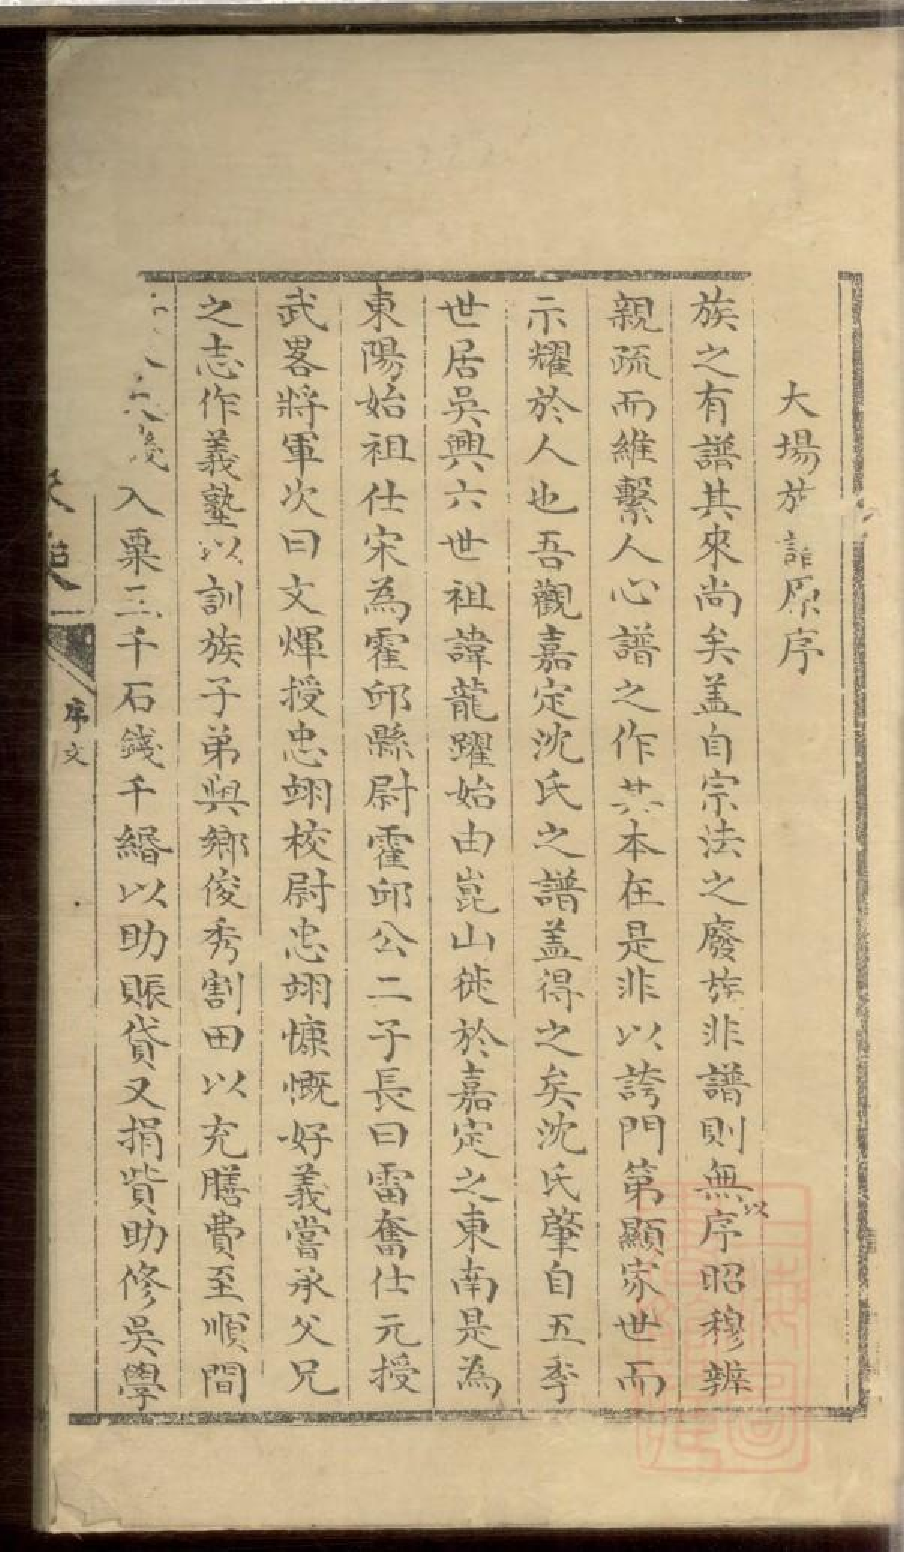 大場族譜原序
族之有譜其來尚矣盖自宗法之廢族非譜則無以序昭穆辨
親疏而維繫人心譜之作其本在是非以誇門第顯家世而
示耀於人也吾觀嘉定沈氏之譜盖得之矣沈氏肇自五季
世居吳興六世祖諱龍躍始由崑山徙於嘉定之東南是為
東陽始祖仕宋為霍邱縣尉霍邱公二子長曰雷奮仕元授
武畧將軍次曰文煇授忠翊校尉忠翊慷慨好義嘗承父兄
之志作義塾以訓族子弟與鄉俊秀割田以充膳費至順間
入粟三千石錢千緡以助賑貸又捐貲助修吳學
序文